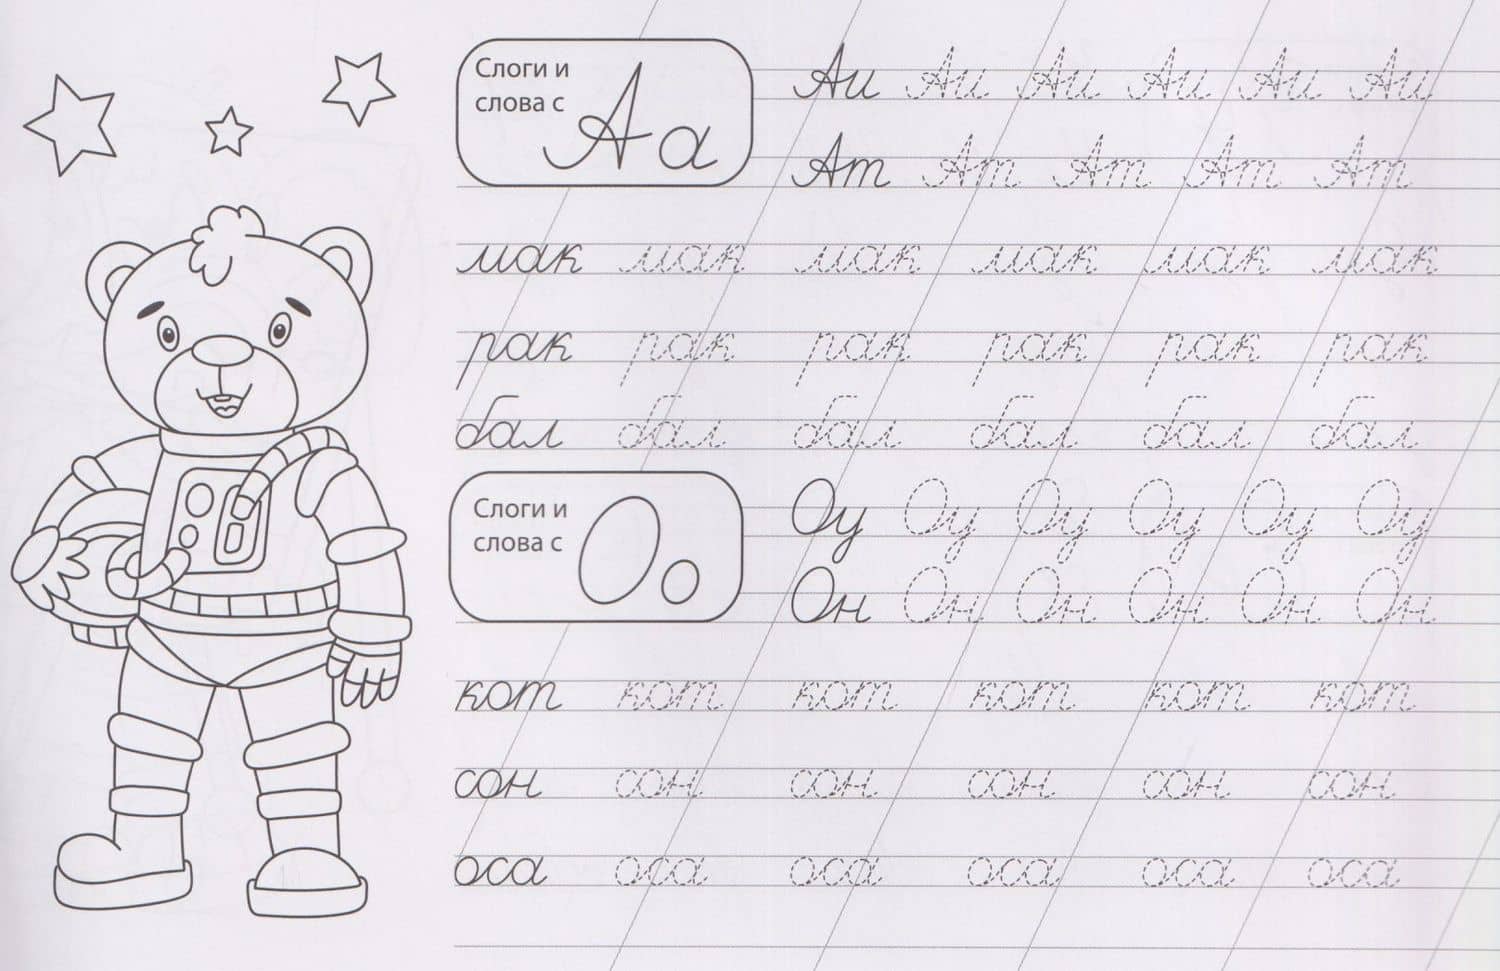 Слоги и
слова с
А а
Аи Аи Аи Аи Аи Аи
Ат Ат Ат Ат Ат
мак мак мак мак мак мак
рак рак рак рак рак рак
бал бал бал бал бал бал
Слоги и
слова с
О о
Оу Оу Оу Оу Оу Оу
Он Он Он Он Он Он
кот кот кот кот кот кот
сон сон сон сон сон сон
оса оса оса оса оса оса